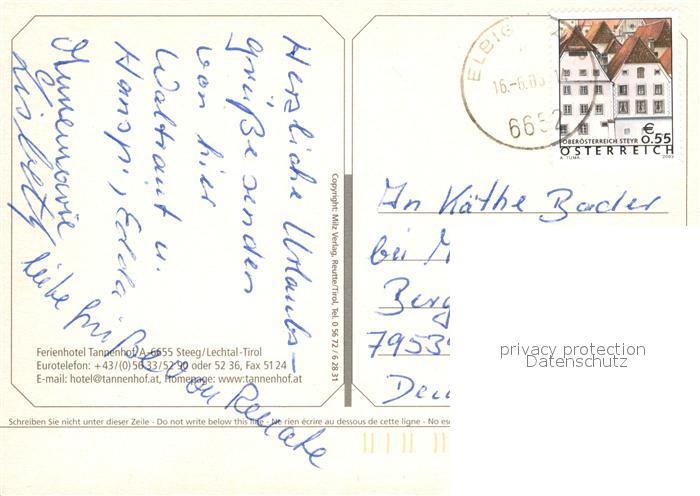 Herzliche Urlaubs-
grüße senden
von hier
Waltraut u.
Hanspi, Erda
Annemarie
Lisbeth
liebe Grüße von Renate
Ferienhotel Tannenhof, A-6655 Steeg/Lechtal-Tirol
Eurotelefon: +43/(0) 56 33/52 90 oder 52 36, Fax 51 24
E-mail: hotel@tannenhof.at, Homepage: www.tannenhof.at
Schreiben Sie nicht unter dieser Zeile - Do not write below this line - Ne rien écrire au dessous de cette ligne - No es
Copyright: Milz Verlag, Reutte/Tirol, Tel. 0 56 72 / 6 28 31
ELBIG
16.-6.03
6652
€
0.55
OBERÖSTERREICH STEYR
ÖSTERREICH
A. TUMA
2003
An Käthe Bader
bei
Berg
7953
Deu
privacy protection
Datenschutz